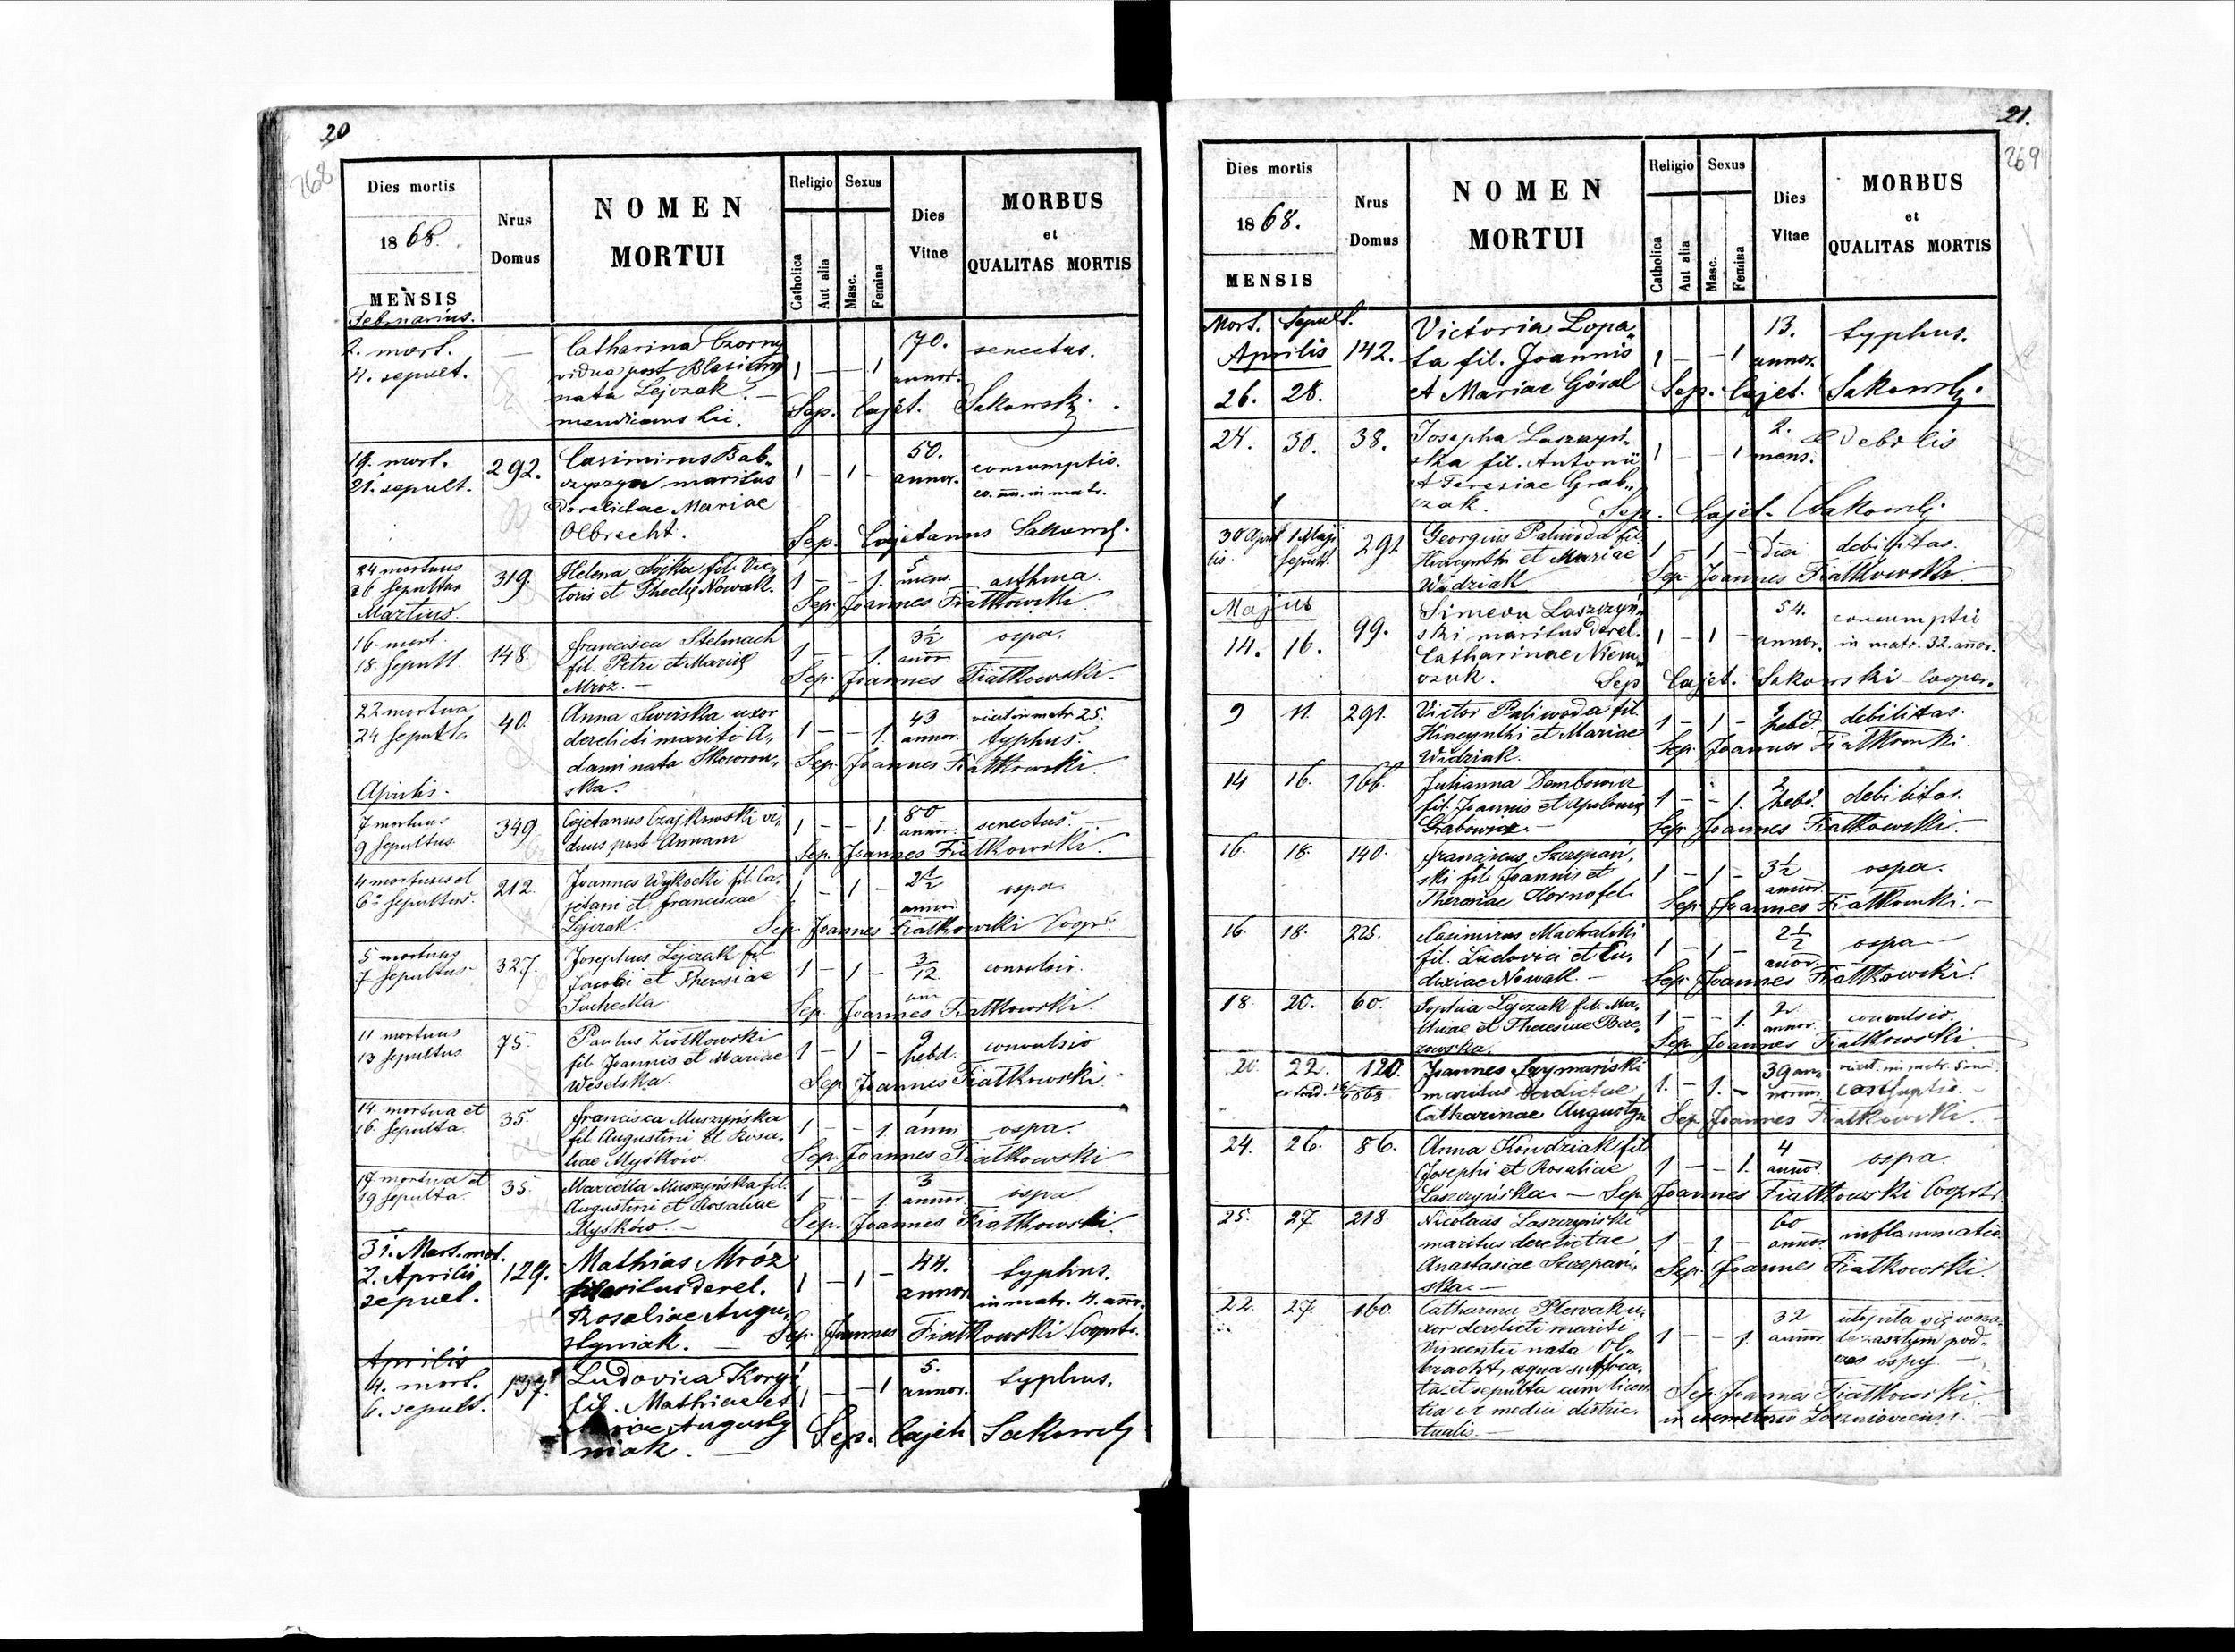 20
268
Dies mortis
1868.
MENSIS
Nrus
Domus
NOMEN
MORTUI
Religio
Sexus
Catholica
Aut alia
Masc.
Femina
Dies
Vitae
MORBUS
et
QUALITAS MORTIS
Februarius.
2. mort. — Catharina Czorny 70. senectus.
4. sepult. vidua post Blasium 1 — — 1 annor.
nata Lejczak. —
mendicans hic. Sep. Cajet. Sakowski.
19. mort. 292. Casimirus Bab„ 50. consumptio.
21. sepult. czyszyn maritus 1 – 1 – annor. 20. an. in matr.
derelictae Mariae
Olbrecht. Sep. Cajetanus Sakowsk.
24 mortuus 319. Helena Sojka fil. Vic„ 5 asthma.
26 Sepultus toris et Theclę Nowak. 1 – – 1. mens.
Sep. Joannes Fiałkowski
Martius.
16 mort. 148. Francisca Stelmach 3½ ospa.
18 Sepult. fil. Petri et Marię 1 – – 1. annor.
Mróz. — Sep. Joannes Fiałkowski.
22 mortua 40. Anna Swiriska uxor 43 vixit in matr 25.
24 Sepulta derelicti mariti A„ 1 – – 1. annor. typhus.
dami nata Skowron„ Sep. Joannes Fiałkowski
ska.
Aprilis.
7 mortuus 349. Cajetanus Czajkowski vi„ 80 senectus.
9 Sepultus. duus post Annam 1 – – 1. annor.
Sep. Joannes Fiałkowski.
4 mortuus et 212. Joannes Wysocki fil. Ca„ 2½ ospa.
6 Sepultus. jetani et Franciscae 1 – 1 – annor.
Lejczak. Sep. Joannes Fiałkowski Coopr.
5 mortuus 327. Josephus Lejczak fil. 3/12 convulsio.
7 Sepultus Jacobi et Theresiae 1 – 1 – ann
Suchecka Sep. Joannes Fiałkowski
11 mortuus 75. Paulus Ziółkowski 9 convulsio
13 Sepultus fil. Joannis et Mariae 1 – 1 – hebd.
Wesolska. Sep. Joannes Fiałkowski
14. mortua et 35. Francisca Muszyńska 1 ospa.
16. Sepulta fil. Augustini et Rosa„ 1 – – 1. anni
liae Myśków. Sep. Joannes Fiałkowski
17 mortua et 35. Marcella Muszyńska fil. 3 ospa.
19 Sepulta Augustini et Rosaliae 1 – – 1. annor.
Myśków. — Sep. Joannes Fiałkowski.
31. Mart. mort. 129. Mathias Mróz 44. typhus.
2. Aprilis maritus derel. 1 – 1 – annor. in matr. 4. ann.
sepult. Rosaliae Augu„
styniak. — Sep. Joannes Fiałkowski Cooprts.
Aprilis
4. mort. 137. Ludovica Koryś 5. typhus.
6. sepult. fil. Mathiae et 1 – – 1 annor.
Mariae Augusty
niak. — Sep. Cajet. Sakowsk
21.
269
Dies mortis
1868.
MENSIS
Nrus
Domus
NOMEN
MORTUI
Religio
Sexus
Catholica
Aut alia
Masc.
Femina
Dies
Vitae
MORBUS
et
QUALITAS MORTIS
Mort. Sepult. Victoria Łopa„ 13. typhus.
Aprilis 142. ta fil. Joannis 1 – – 1 annor.
26. 28. et Mariae Góral Sep. Cajet. Sakowsk.
24. 30. 38. Josepha Laszczyń„ 2. Debilis
ska fil. Antonii 1 – – 1 mens.
et Teresiae Grab„
czak. Sep. Cajet. Sakowsk.
30 Apri 1 Maji 291 Georgius Paliwoda fil. 1 debilitas.
lis. Sepult. Hiacynthi et Mariae 1 – 1 – diei
Wudziak Sep. Joannes Fiałkowski.
Majus Simeon Laszczyń„ 54. consumptio
14. 16. 99. ski maritus derel. 1 – 1 – annor. in matr. 32. annor.
Catharinae Niem„
czuk. Sep Cajet. Sakowski – Cooper.
9 11. 291. Victor Paliwoda fil. 1 debilitas.
Hiacynthi et Mariae 1 – 1 – hebd.
Wudziak. Sep. Joannes Fiałkowski.
14 16. 166. Julianna Dembowicz 2 debilitas.
fil. Joannis et Apoloniae 1 – – 1. hebd.
Grabowicz. — Sep. Joannes Fiałkowski.
16. 18. 140. Franciscus Szczepań„ 3½ ospa.
ski fil. Joannis et 1 – 1 – annor.
Theresiae Kornofel. Sep. Joannes Fiałkowski. –
16. 18. 225. Casimirus Machalski 2½ ospa –
fil. Ludovici et Eu„ 1 – 1 – annor.
doxiae Nowak. — Sep. Joannes Fiałkowski.
18. 20. 60. Sophia Lejczak fil. Ma„ 2 convulsio.
thiae et Theresiae Brze„ 1 – – 1. annor.
zowska. Sep. Joannes Fiałkowski.
20. 22. 120. Joannes Szymański 39 an„ vixit in matr. 5 an.
maritus derelictae 1. – 1. – norum
Catharinae Augustyn Sep. Joannes Fiałkowski.
24. 26. 86. Anna Kowdziak fil. 4 ospa.
Josephi et Rosaliae 1 – – 1. annor.
Laszczyńska. — Sep. Joannes Fiałkowski Cooprts.
25. 27. 218. Nicolaus Laszczyński 60 inflammatio.
maritus derelictae 1 – 1. – annor.
Anastasiae Szczepań„ Sep. Joannes Fiałkowski.
ska. —
22. 27. 160. Catharina Plewak u„ 32 utopiła się
xor derelicti mariti 1 – – 1. annor. pod„
Vincentii nata Ol„ czas ospy —
bracht, aqua suffoca„
ta et sepulta cum licen Sep. Joannes Fiałkowski.
tia ex medici distric„ in cemeterio
tualis. —